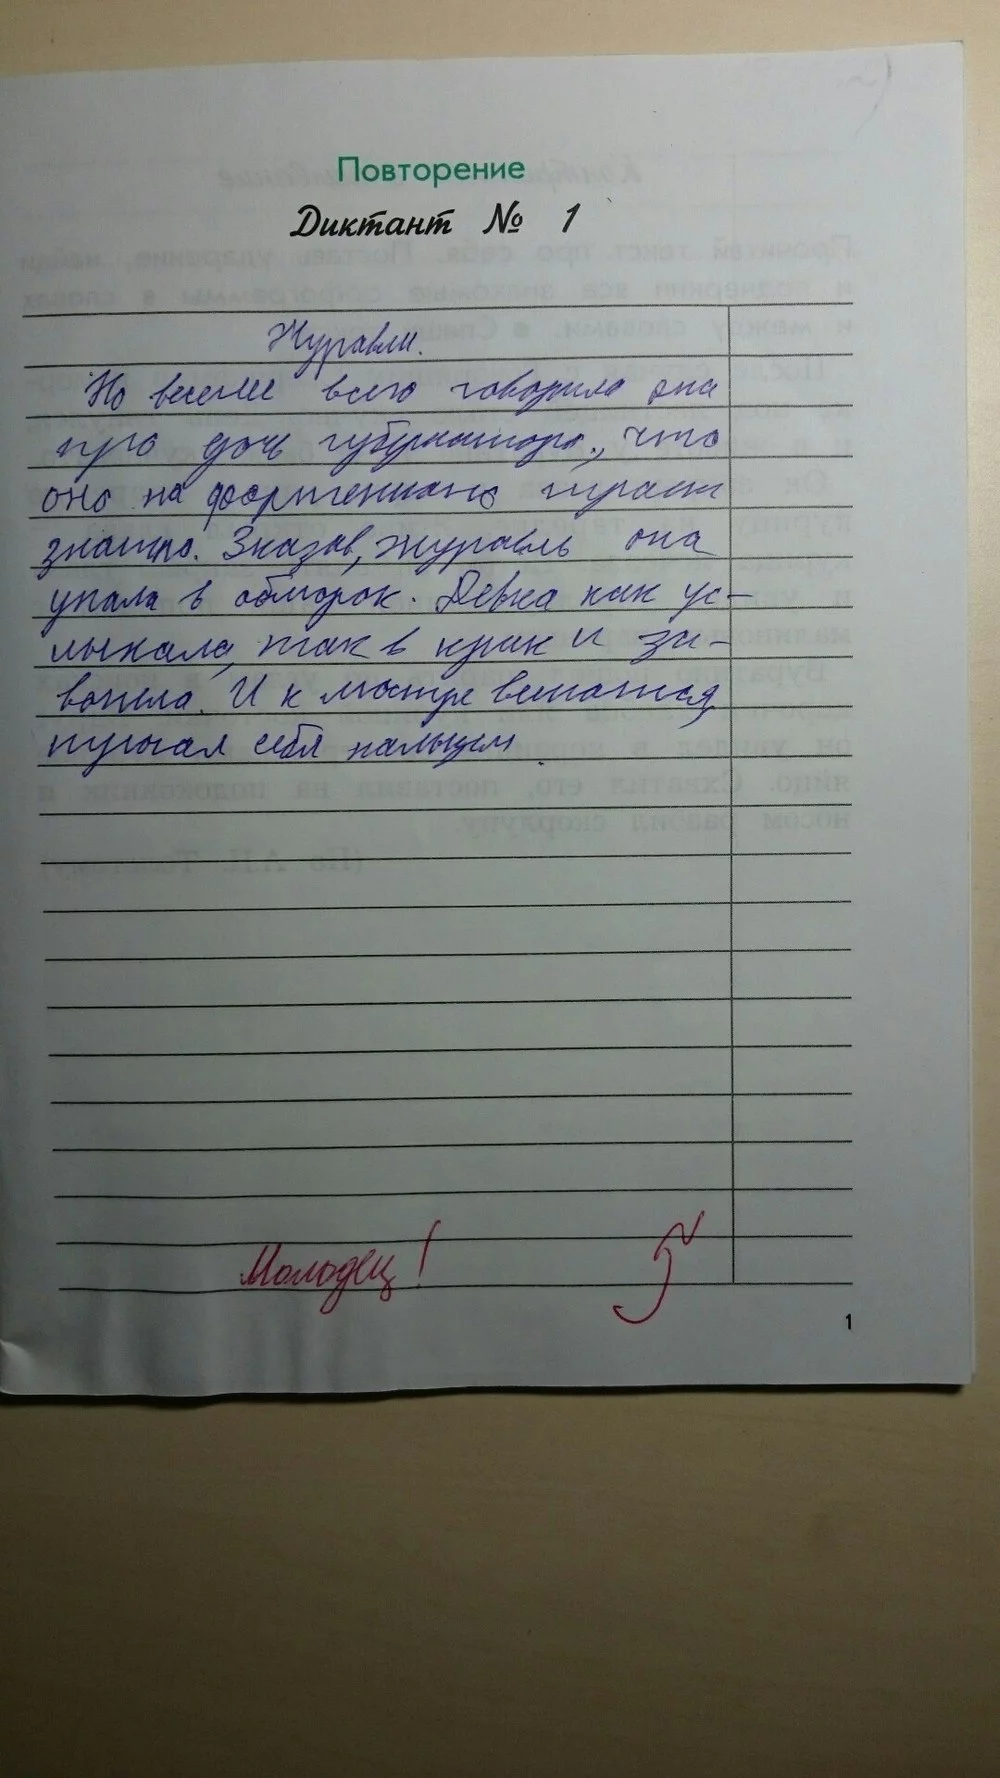 Повторение
Диктант № 1
Журавли.
Но веселее всего говорила она
про дочь губернатора, что
она на фортепиано играет
знатно. Сказав, журавль она
упала в обморок. Девка как ус-
лыхала, так в крик и за-
вопила. И к люстре
пугая себя пальцем.
Молодец!
1